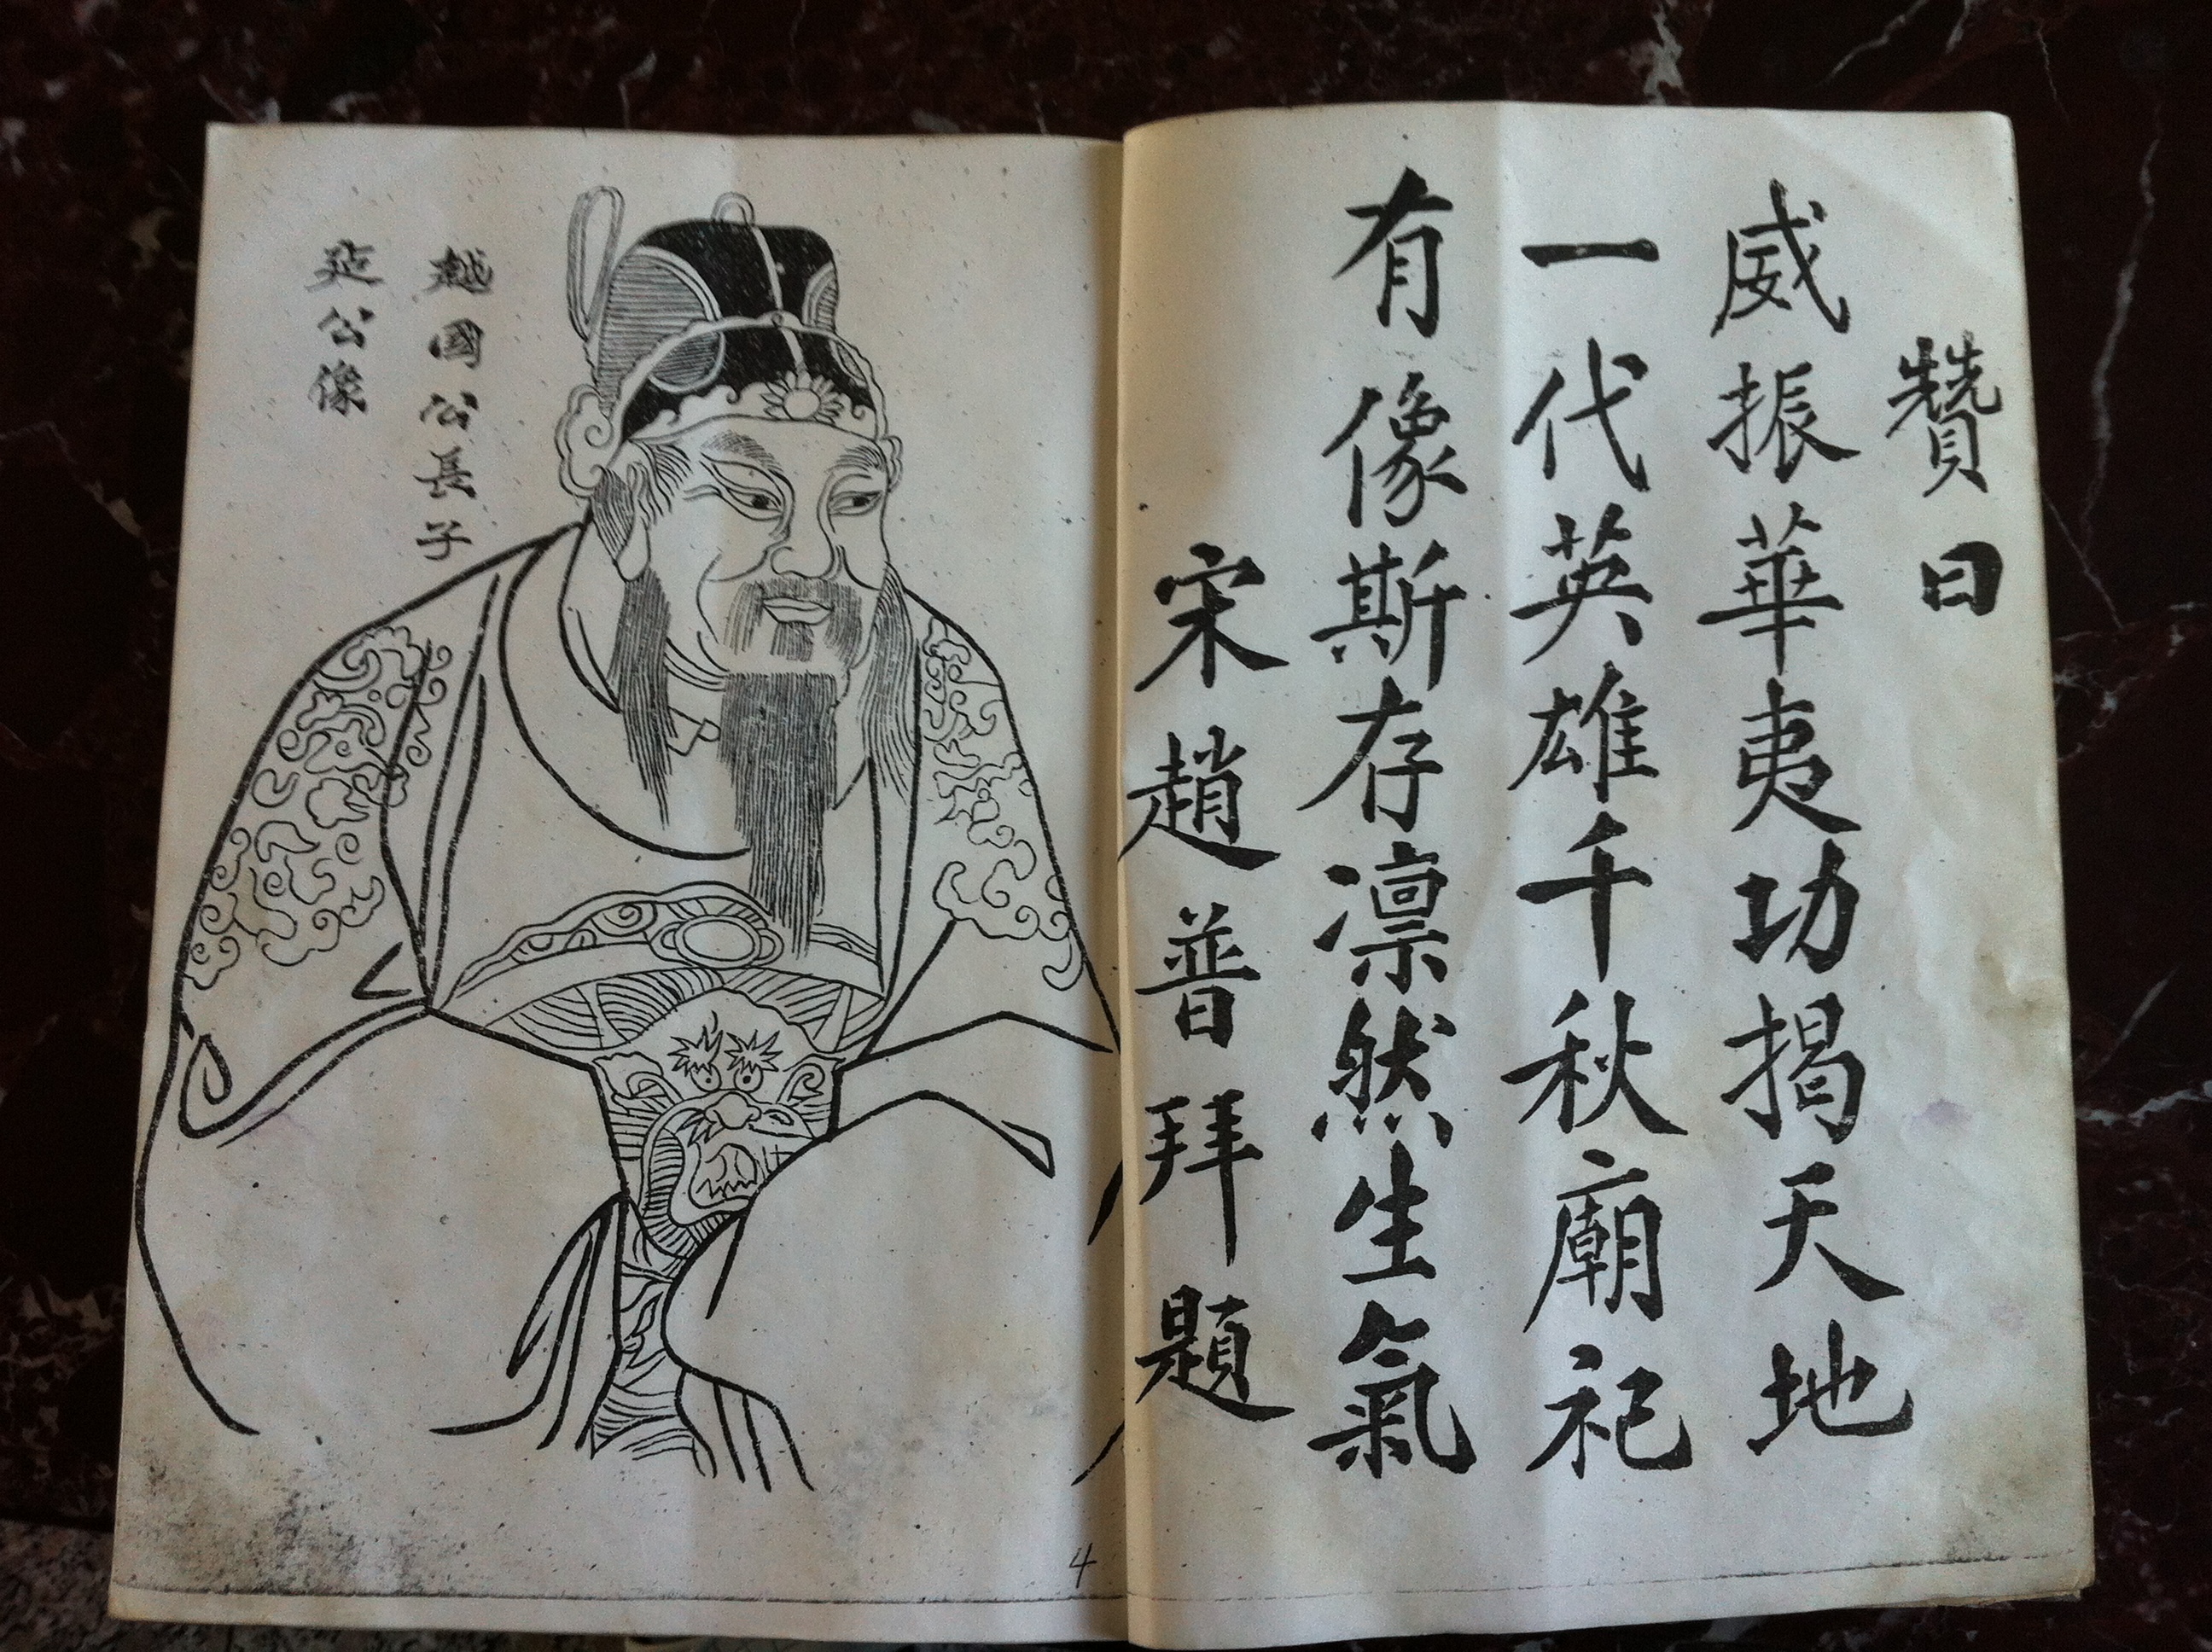 贊曰
威振華夷功揭天地
一代英雄千秋廟祀
有像斯存凛然生氣
宋趙普拜題
越國公長子
延公像
4